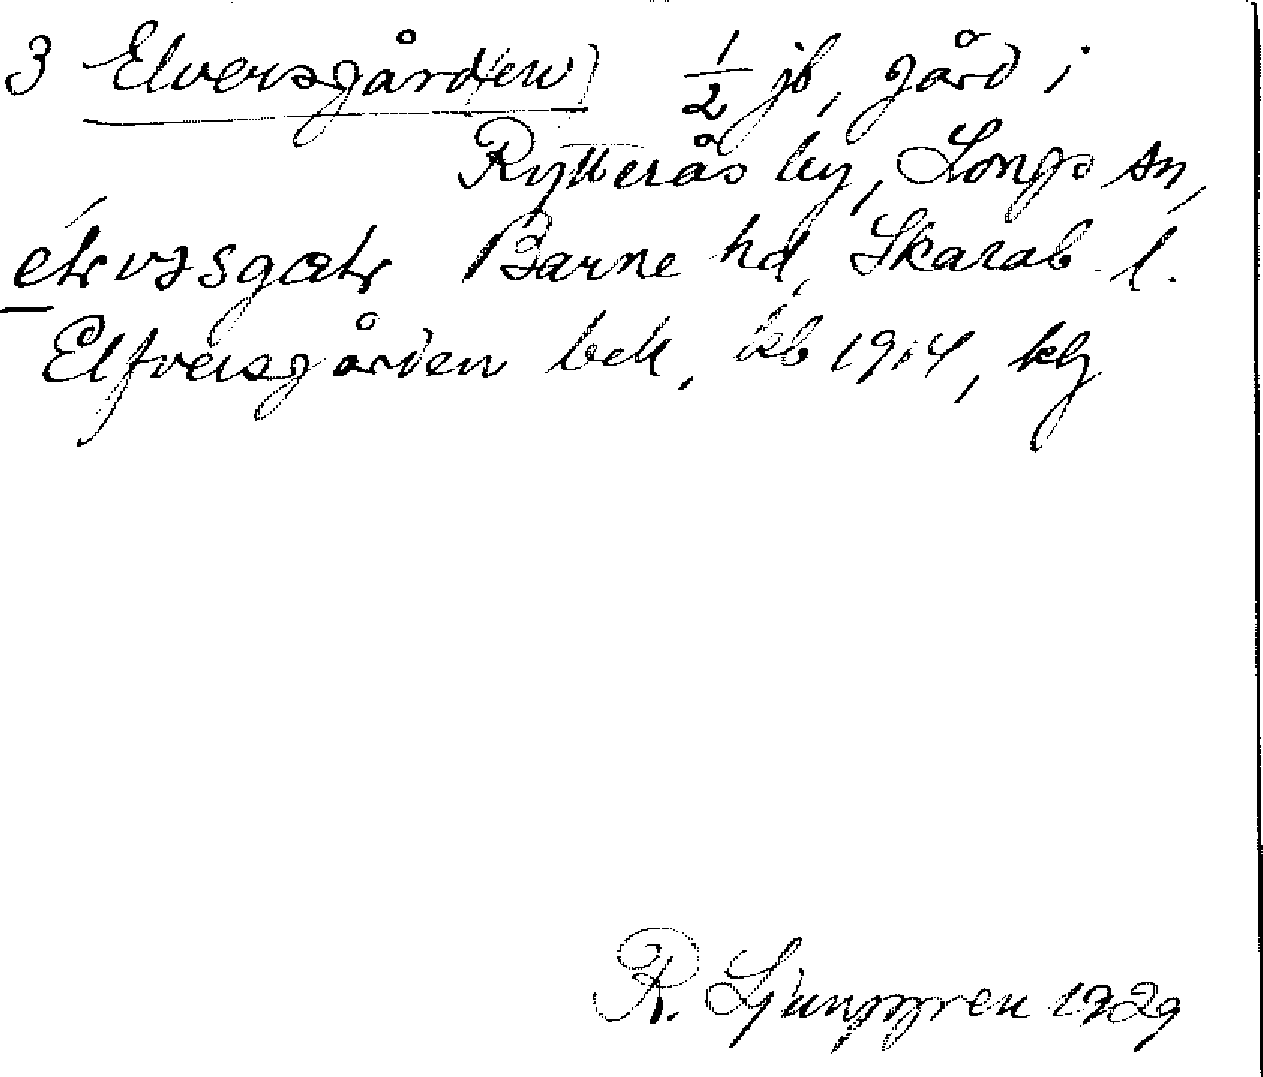 3 Elversgård(en) 1/2 jb, gård i
Rytterås by, Longs sn,
Barne hd, Skarab. l.
Elfversgården bek, kb 1914, kby
R. Ljunggren 1929